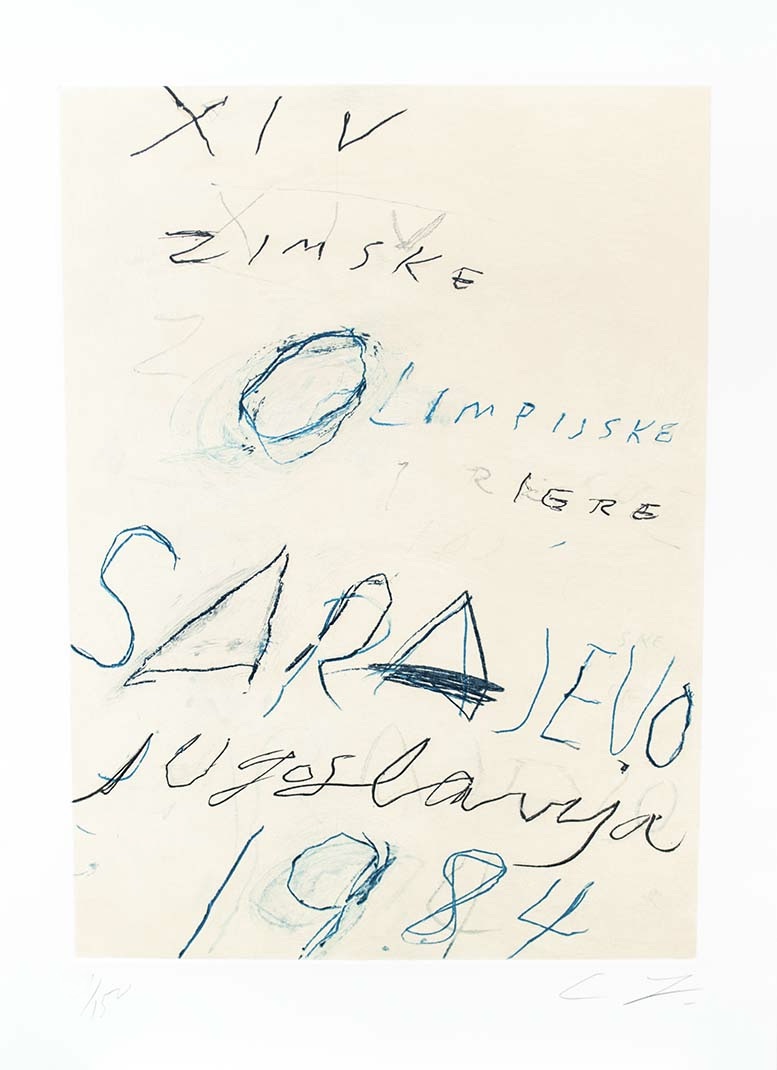 XIV
ZIMSKE
OLIMPIJSKE
IGRE
SARAJEVO
Jugoslavija
19.84
1/150